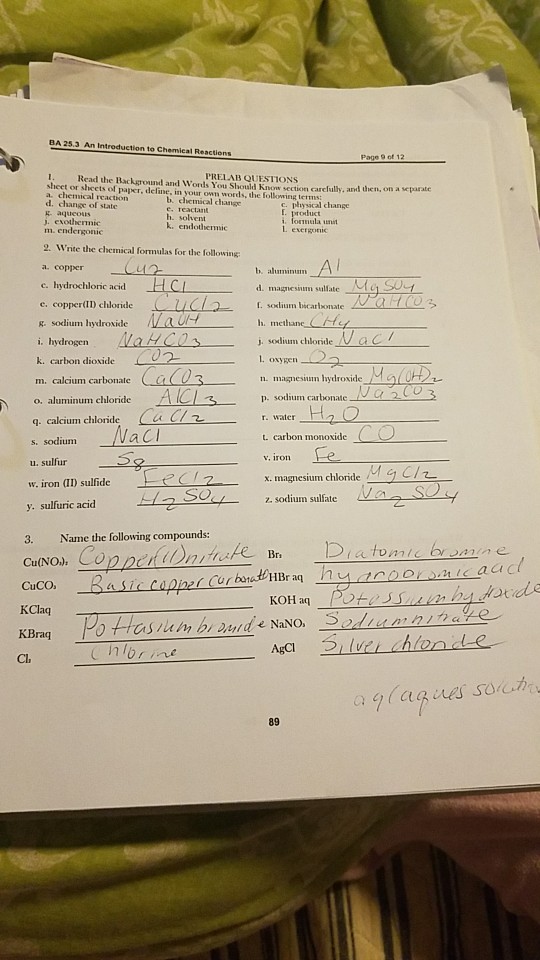 BA 25.3 An Introduction to Chemical Reactions Page 9 of 12
PRELAB QUESTIONS
1. Read the Background and Words You Should Know section carefully, and then, on a separate
sheet or sheets of paper, define, in your own words, the following terms:
a. chemical reaction b. chemical change c. physical change
d. change of state e. reactant f. product
g. aqueous h. solvent i. formula unit
j. exothermic k. endothermic l. exergonic
m. endergonic
2. Write the chemical formulas for the following:
a. copper Cu2 b. aluminum Al
c. hydrochloric acid HCl d. magnesium sulfate MgSO4
e. copper(II) chloride CuCl2 f. sodium bicarbonate NaHCO3
g. sodium hydroxide NaOH h. methane CH4
i. hydrogen NaHCO3 j. sodium chloride NaCl
k. carbon dioxide CO2 l. oxygen O2
m. calcium carbonate CaCO3 n. magnesium hydroxide Mg(OH)2
o. aluminum chloride AlCl3 p. sodium carbonate Na2CO3
q. calcium chloride CaCl2 r. water H2O
s. sodium NaCl t. carbon monoxide CO
u. sulfur S8 v. iron Fe
w. iron (II) sulfide FeCl2 x. magnesium chloride MgCl2
y. sulfuric acid H2SO4 z. sodium sulfate Na2SO4
3. Name the following compounds:
Cu(NO3)2 Copper(II)nitrate Br2 Diatomic bromine
CuCO3 Basic copper carbonate HBr aq hydrobromic acid
KClaq KOH aq Potassium hydroxide
KBraq Pottasium bromide NaNO3 Sodium nitrate
Cl2 Chlorine AgCl Silver chloride
aq(aques solution
89